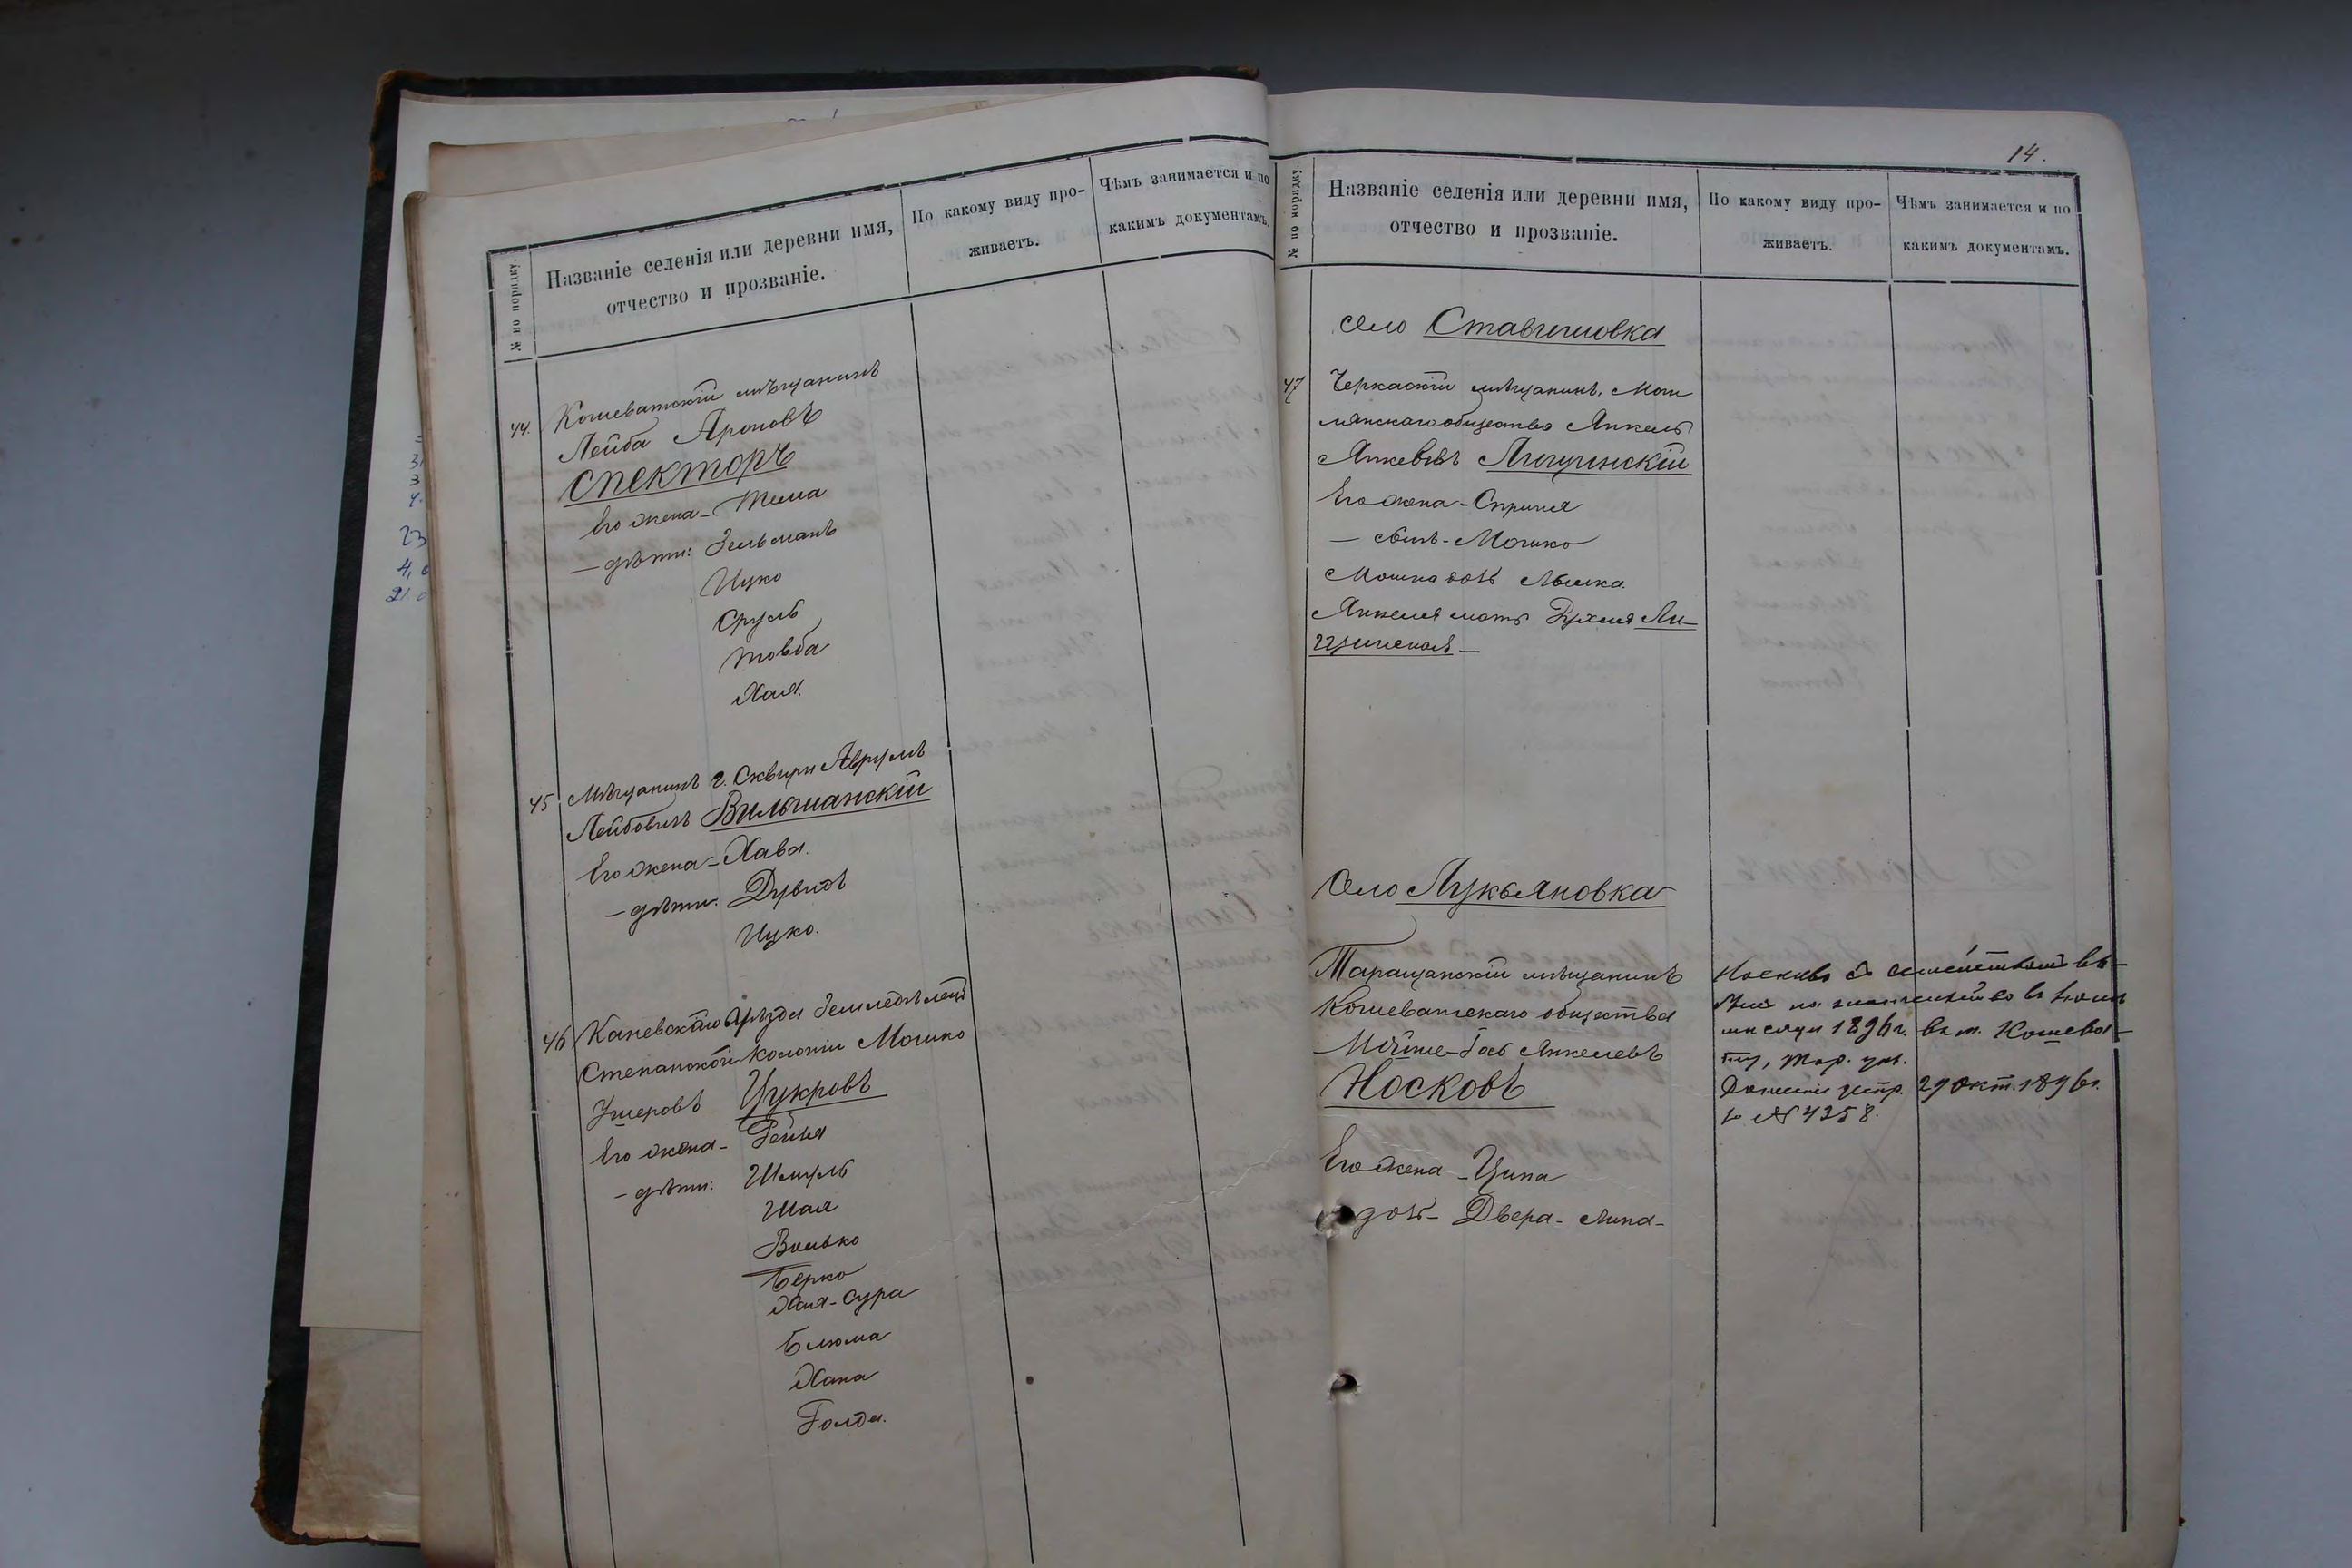 № по порядку.
Названіе селенія или деревни имя,
отчество и прозваніе.
По какому виду про-
живаетъ.
Чѣмъ занимается и по
какимъ документамъ.
44. Кошеватскій мѣщанинъ
Лейба Ароновъ
Спекторъ
Его жена - Тема
- дѣти: Зельманъ
Ицко
Сруль
Товба
Хая.
45 Мѣщанинъ г. Сквиры Аврумъ
Лейбовичъ Вильшанскій
Его жена - Хава.
- дѣти. Дувидъ
Ицко.
46 Каневскаго Уѣзда Земледѣлецъ
Степанской колоніи Мошко
Ушеровъ Цукровъ
Его жена - Рейзя
- дѣти: Шмуль
Шая
Волько
Берко
Хая-Сура
Блюма
Хана
Голда.
14.
№ по порядку.
Названіе селенія или деревни имя,
отчество и прозваніе.
По какому виду про-
живаетъ.
Чѣмъ занимается и по
какимъ документамъ.
село Ставищовка
47 Черкаскій мѣщанинъ, Мош
общества Янкель
Янкевъ Лищинскій
Его жена - Сприня
- сынъ - Мошко
Мошка дочь
Янкеля мать Рухля Ли-
щинская -
Село Лукьяновка
Таращанскій мѣщанинъ
Кошеватскаго общества
Мойше-Гось Янкелевъ
Носковъ
Его жена - Ципа
дочь - Двера -
Носковъ съ семействомъ вы-
на жительство въ
мѣсяцѣ 1896 г. въ м. Кошева-
ту, Тар. уѣз.
Донесеніе 29 Окт. 1896 г.
№ 4358.